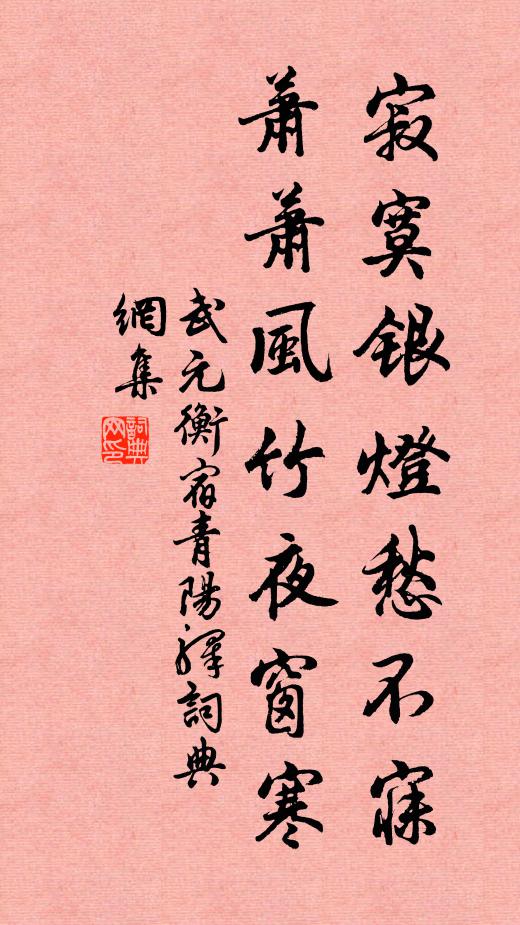 寂寞銀燈愁不寐
蕭蕭風竹夜窗寒
武元衡宿青陽驛詞典
網集
詞典
网印